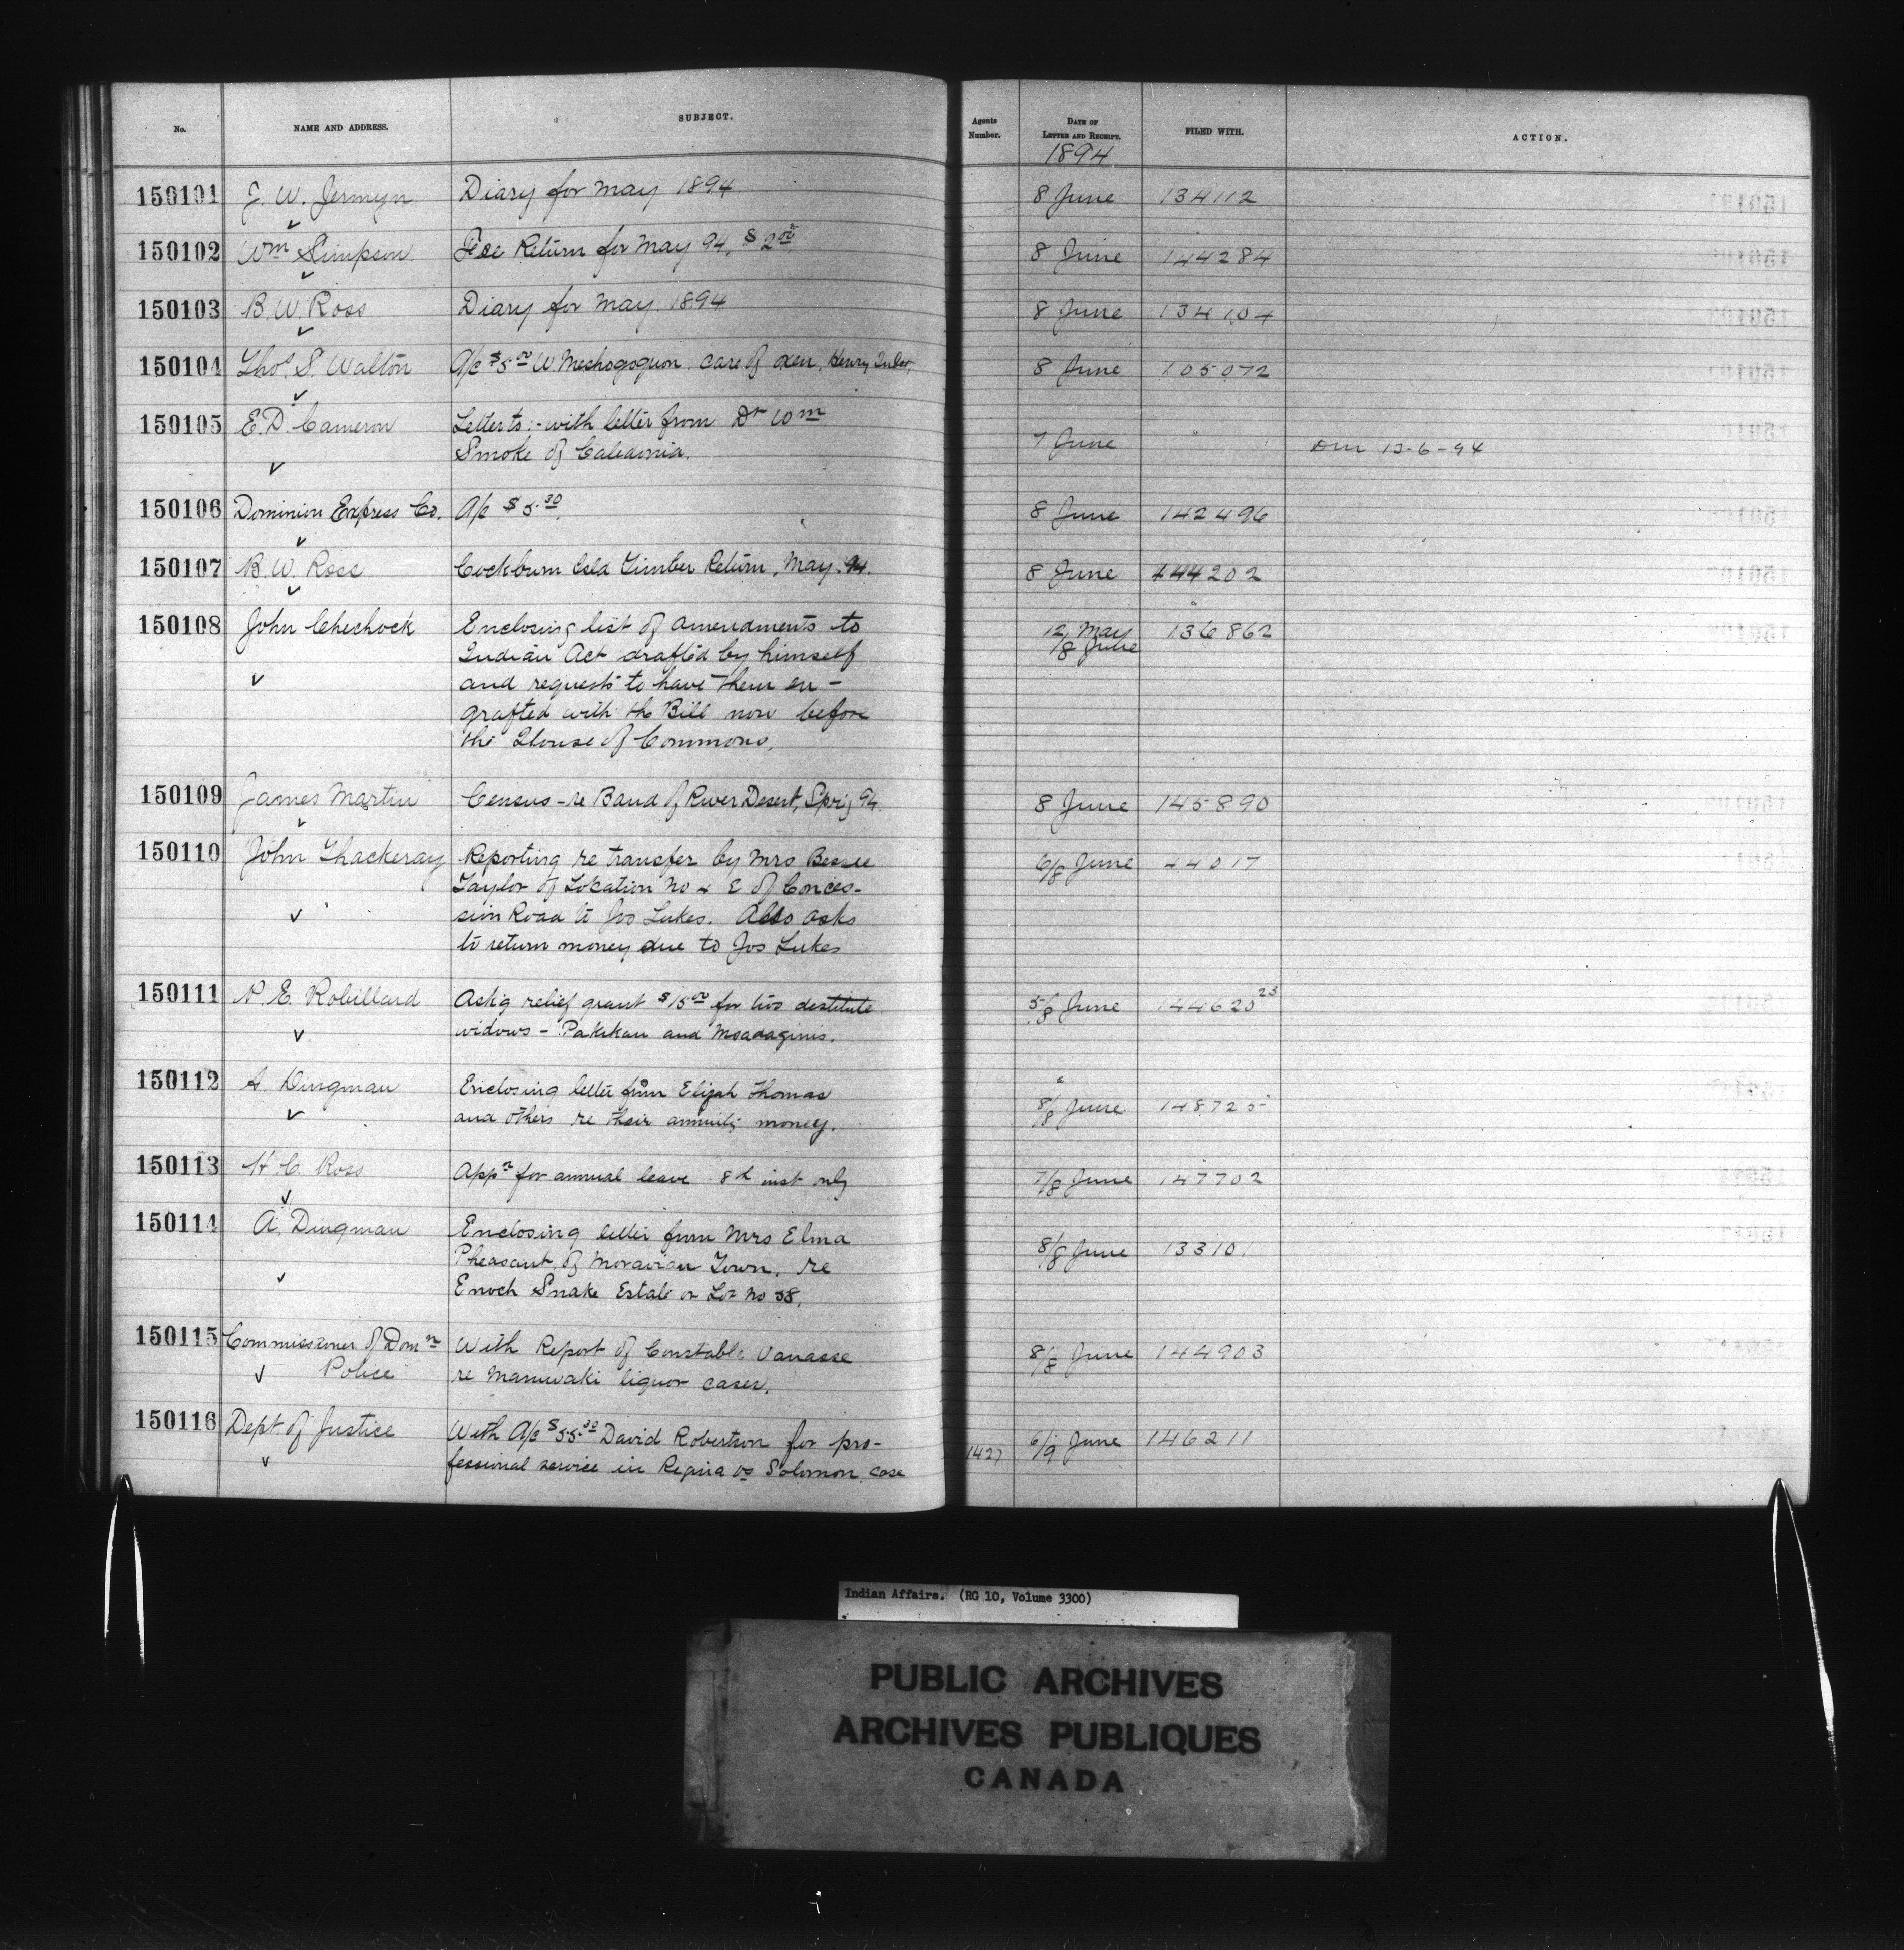 No. NAME AND ADDRESS. SUBJECT. Agents Number. DATE OF LETTER AND RECEIPT. FILED WITH. ACTION.
1894
150101 J. W. Jermyn Diary for May 1894 8 June 134112
150102 Wm Simpson Fee Return for May 94, $2.00 8 June 144284
150103 B. W. Ross Diary for May 1894 8 June 134104
150104 Thos. S. Walton A/c $5.00 W. Meshogoquon. care of oxen, Henry 8 June 105072
150105 E. D. Cameron Letter to:- with letter from Dr Wm
Smoke of Caledonia. 7 June 13-6-94
150106 Dominion Express Co. A/c $5.30 8 June 142496
150107 B. W. Ross Cockburn Isld Timber Return, May. 94. 8 June 144202
150108 John Chechock Enclosing list of amendments to 12/ May 136862
Indian Act drafted by himself /8 June
and requests to have them en-
grafted with the Bill now before
the House of Commons.
150109 James Martin Census - re Band of River Desert, Sprig 94. 8 June 145890
150110 John Thackeray Reporting re transfer by Mrs Bessie 6/8 June 44017
Taylor of Location No 4 E of Conces-
sion Road to Jos Lukes. Also asks
to return money due to Jos Lukes
150111 N. E. Robillard Ask'g relief grant $15.00 for two destitute 5/8 June 144620 23
widows - Pakikan and
150112 A. Dingman Enclosing letter from Elijah Thomas
and others re their annuity money. 8/8 June 148725
150113 H. C. Ross Appn for annual leave 8th inst only 7/8 June 147702
150114 A. Dingman Enclosing letter from Mrs Elma
Pheasant of Moravian Town. re 8/8 June 133101
Enoch Snake Estate or Lot No 38.
150115 Commissioner of Domn With Report of Constable Vanasse 8/8 June 144903
Police re Maniwaki liquor cases.
150116 Dept of Justice With A/c $55.30 David Robertson for pro- 1427 6/9 June 146211
fessional service in Regina vs Solomon case
Indian Affairs. (RG 10, Volume 3300)
PUBLIC ARCHIVES
ARCHIVES PUBLIQUES
CANADA